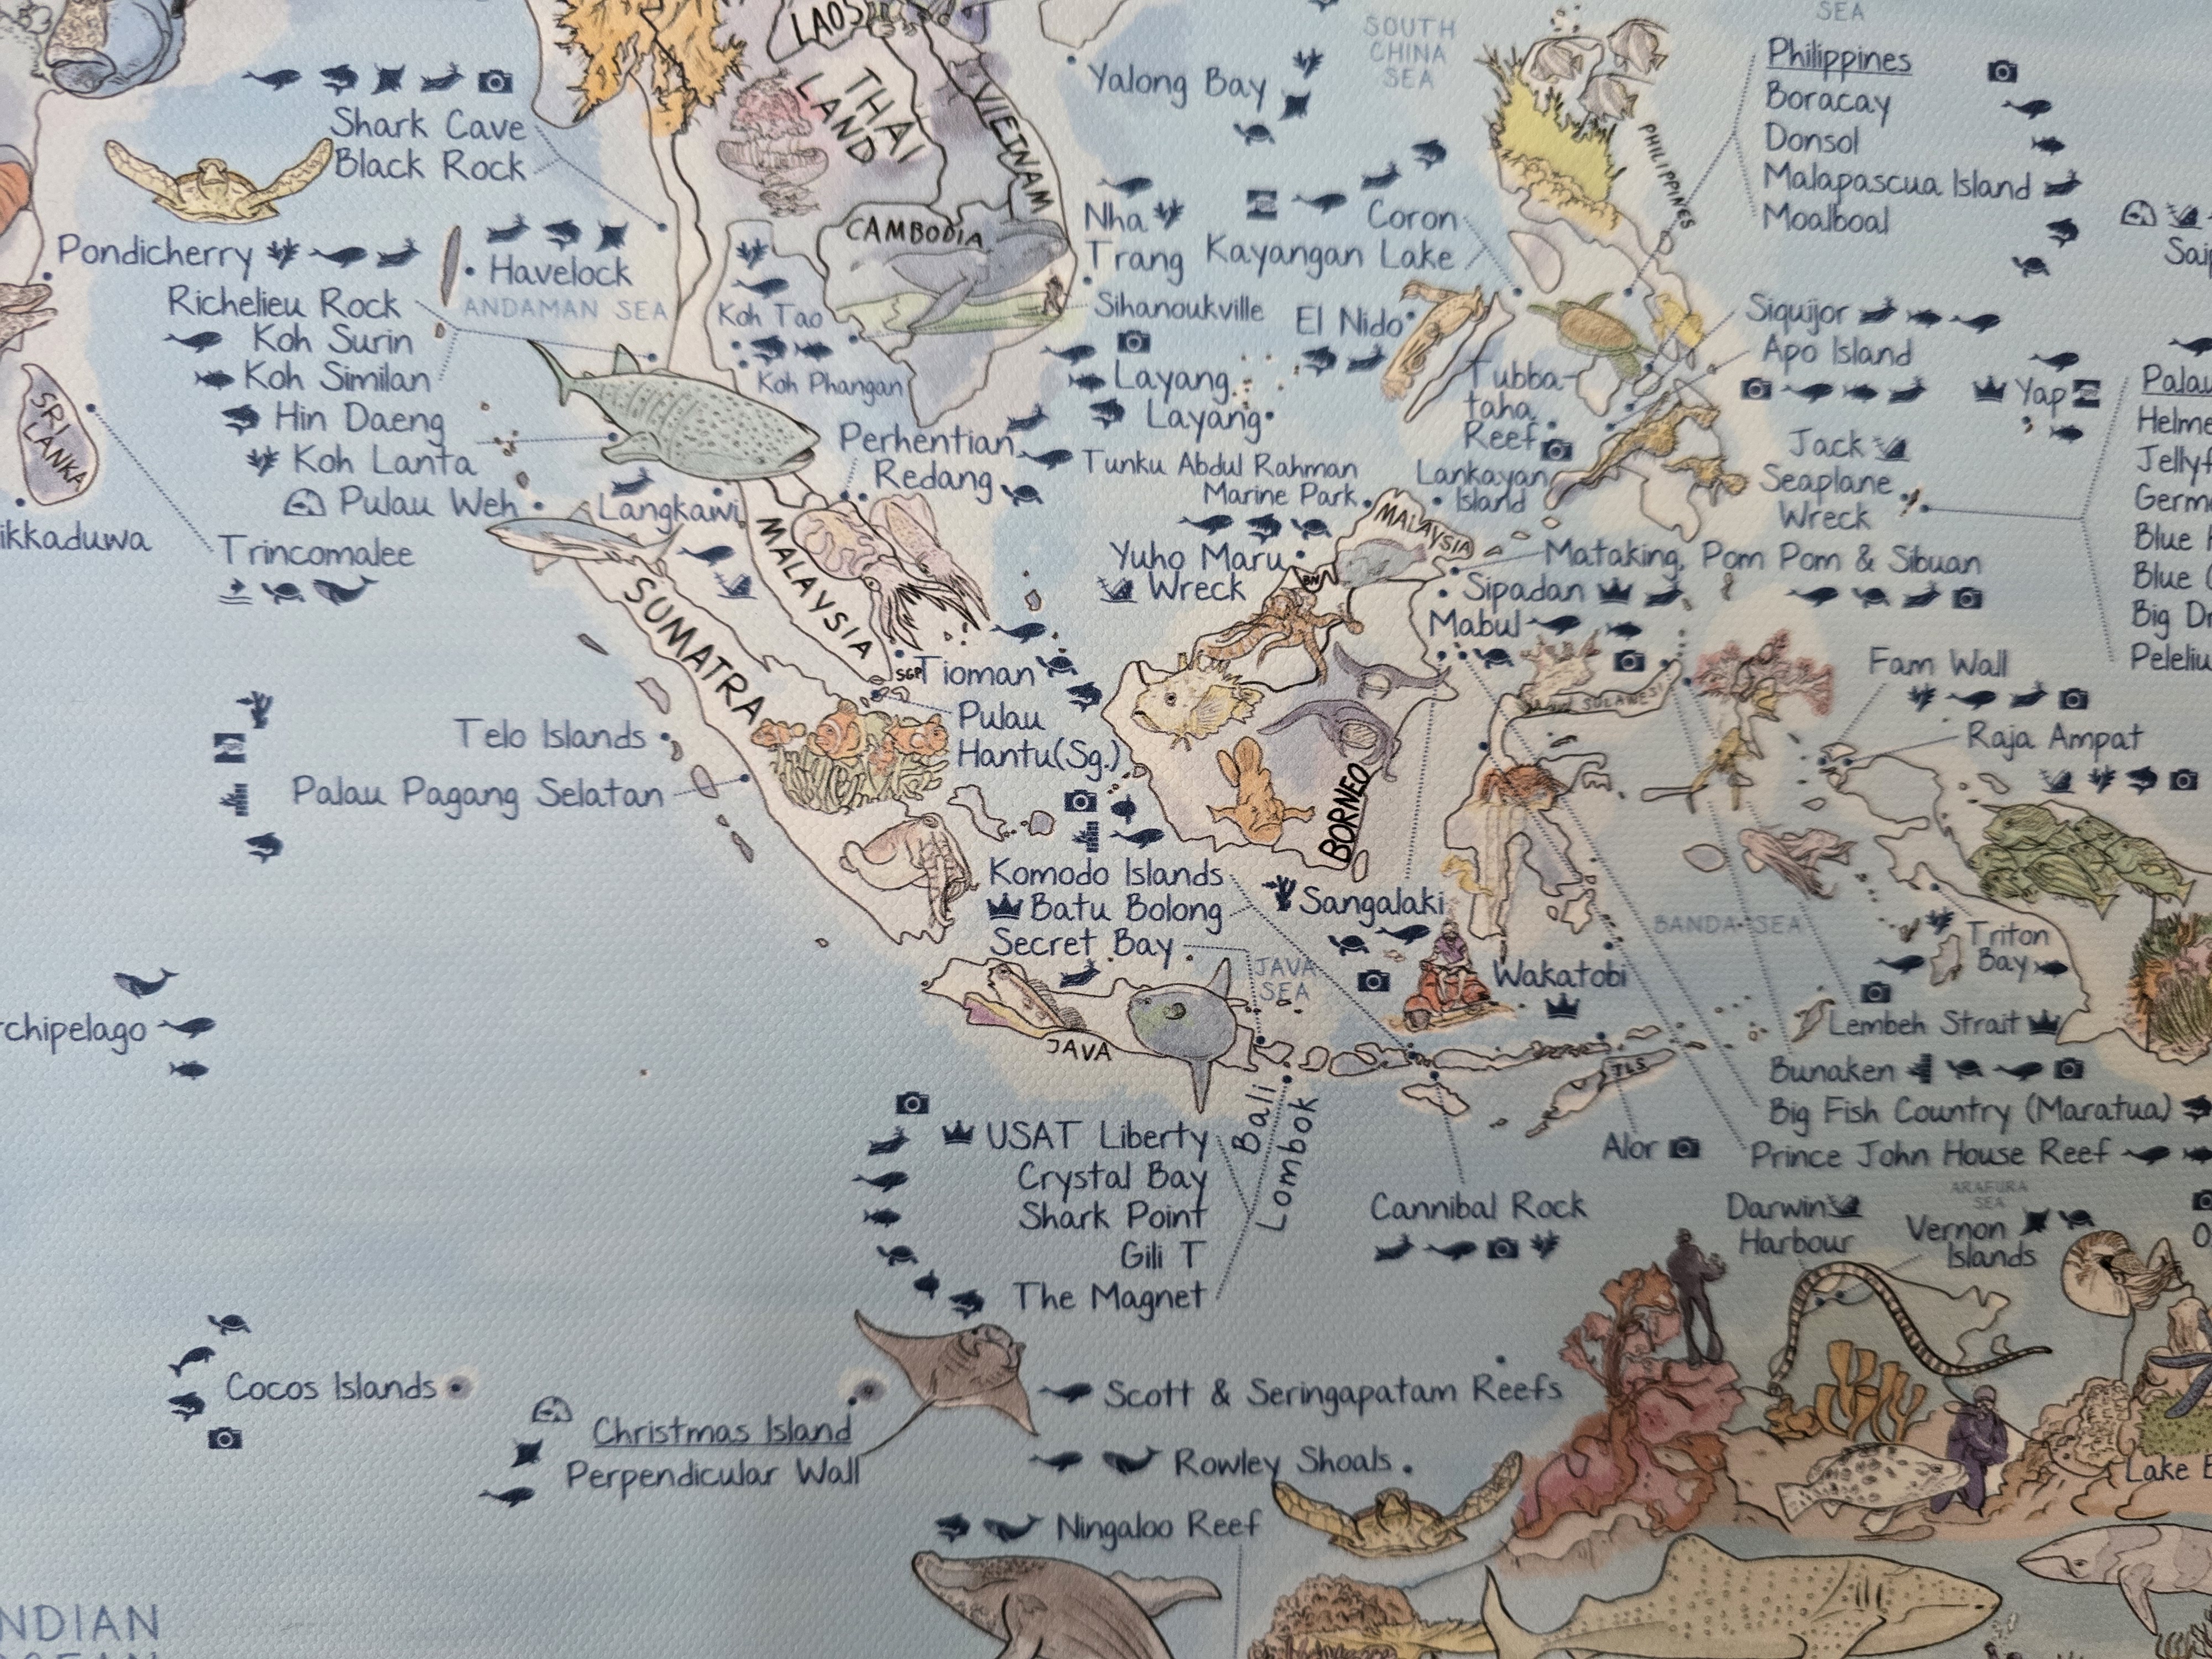 LAOS
THAI
LAND
VIETNAM
CAMBODIA
SOUTH
CHINA
SEA
SEA
Yalong Bay
Philippines
Boracay
Donsol
Malapascua Island
Moalboal
PHILIPPINES
Shark Cave
Black Rock
Pondicherry
Havelock
ANDAMAN SEA
Richelieu Rock
Koh Surin
Koh Similan
Hin Daeng
Koh Lanta
Pulau Weh
SRI
LANKA
ikkaduwa
Trincomalee
Koh Tao
Koh Phangan
Nha
Trang
Sihanoukville
Coron
Kayangan Lake
El Nido
Layang
Layang
Perhentian
Redang
Langkawi
Tunku Abdul Rahman
Marine Park
Yuho Maru
Wreck
Tubba-
taha
Reef
Lankayan
Island
Siquijor
Apo Island
Yap
Jack
Seaplane
Wreck
Palau
Helme
Jellyf
Germ
Blue
Blue
Big Dr
Peleliu
MALAYSIA
MALAYSIA
BN
Mataking, Pom Pom & Sibuan
Sipadan
Mabul
SUMATRA
SGP
Tioman
Pulau
Hantu(Sg.)
BORNEO
SULAWESI
Fam Wall
Raja Ampat
Telo Islands
Palau Pagang Selatan
Komodo Islands
Batu Bolong
Secret Bay
Sangalaki
JAVA
SEA
BANDA SEA
Wakatobi
Triton
Bay
Lembeh Strait
Bunaken
Big Fish Country (Maratua)
Prince John House Reef
rchipelago
JAVA
TLS
Alor
Bali
Lombok
USAT Liberty
Crystal Bay
Shark Point
Gili T
The Magnet
Cannibal Rock
Darwin
Harbour
ARAFURA
SEA
Vernon
Islands
Cocos Islands
Christmas Island
Perpendicular Wall
Scott & Seringapatam Reefs
Rowley Shoals
Ningaloo Reef
Lake
NDIAN